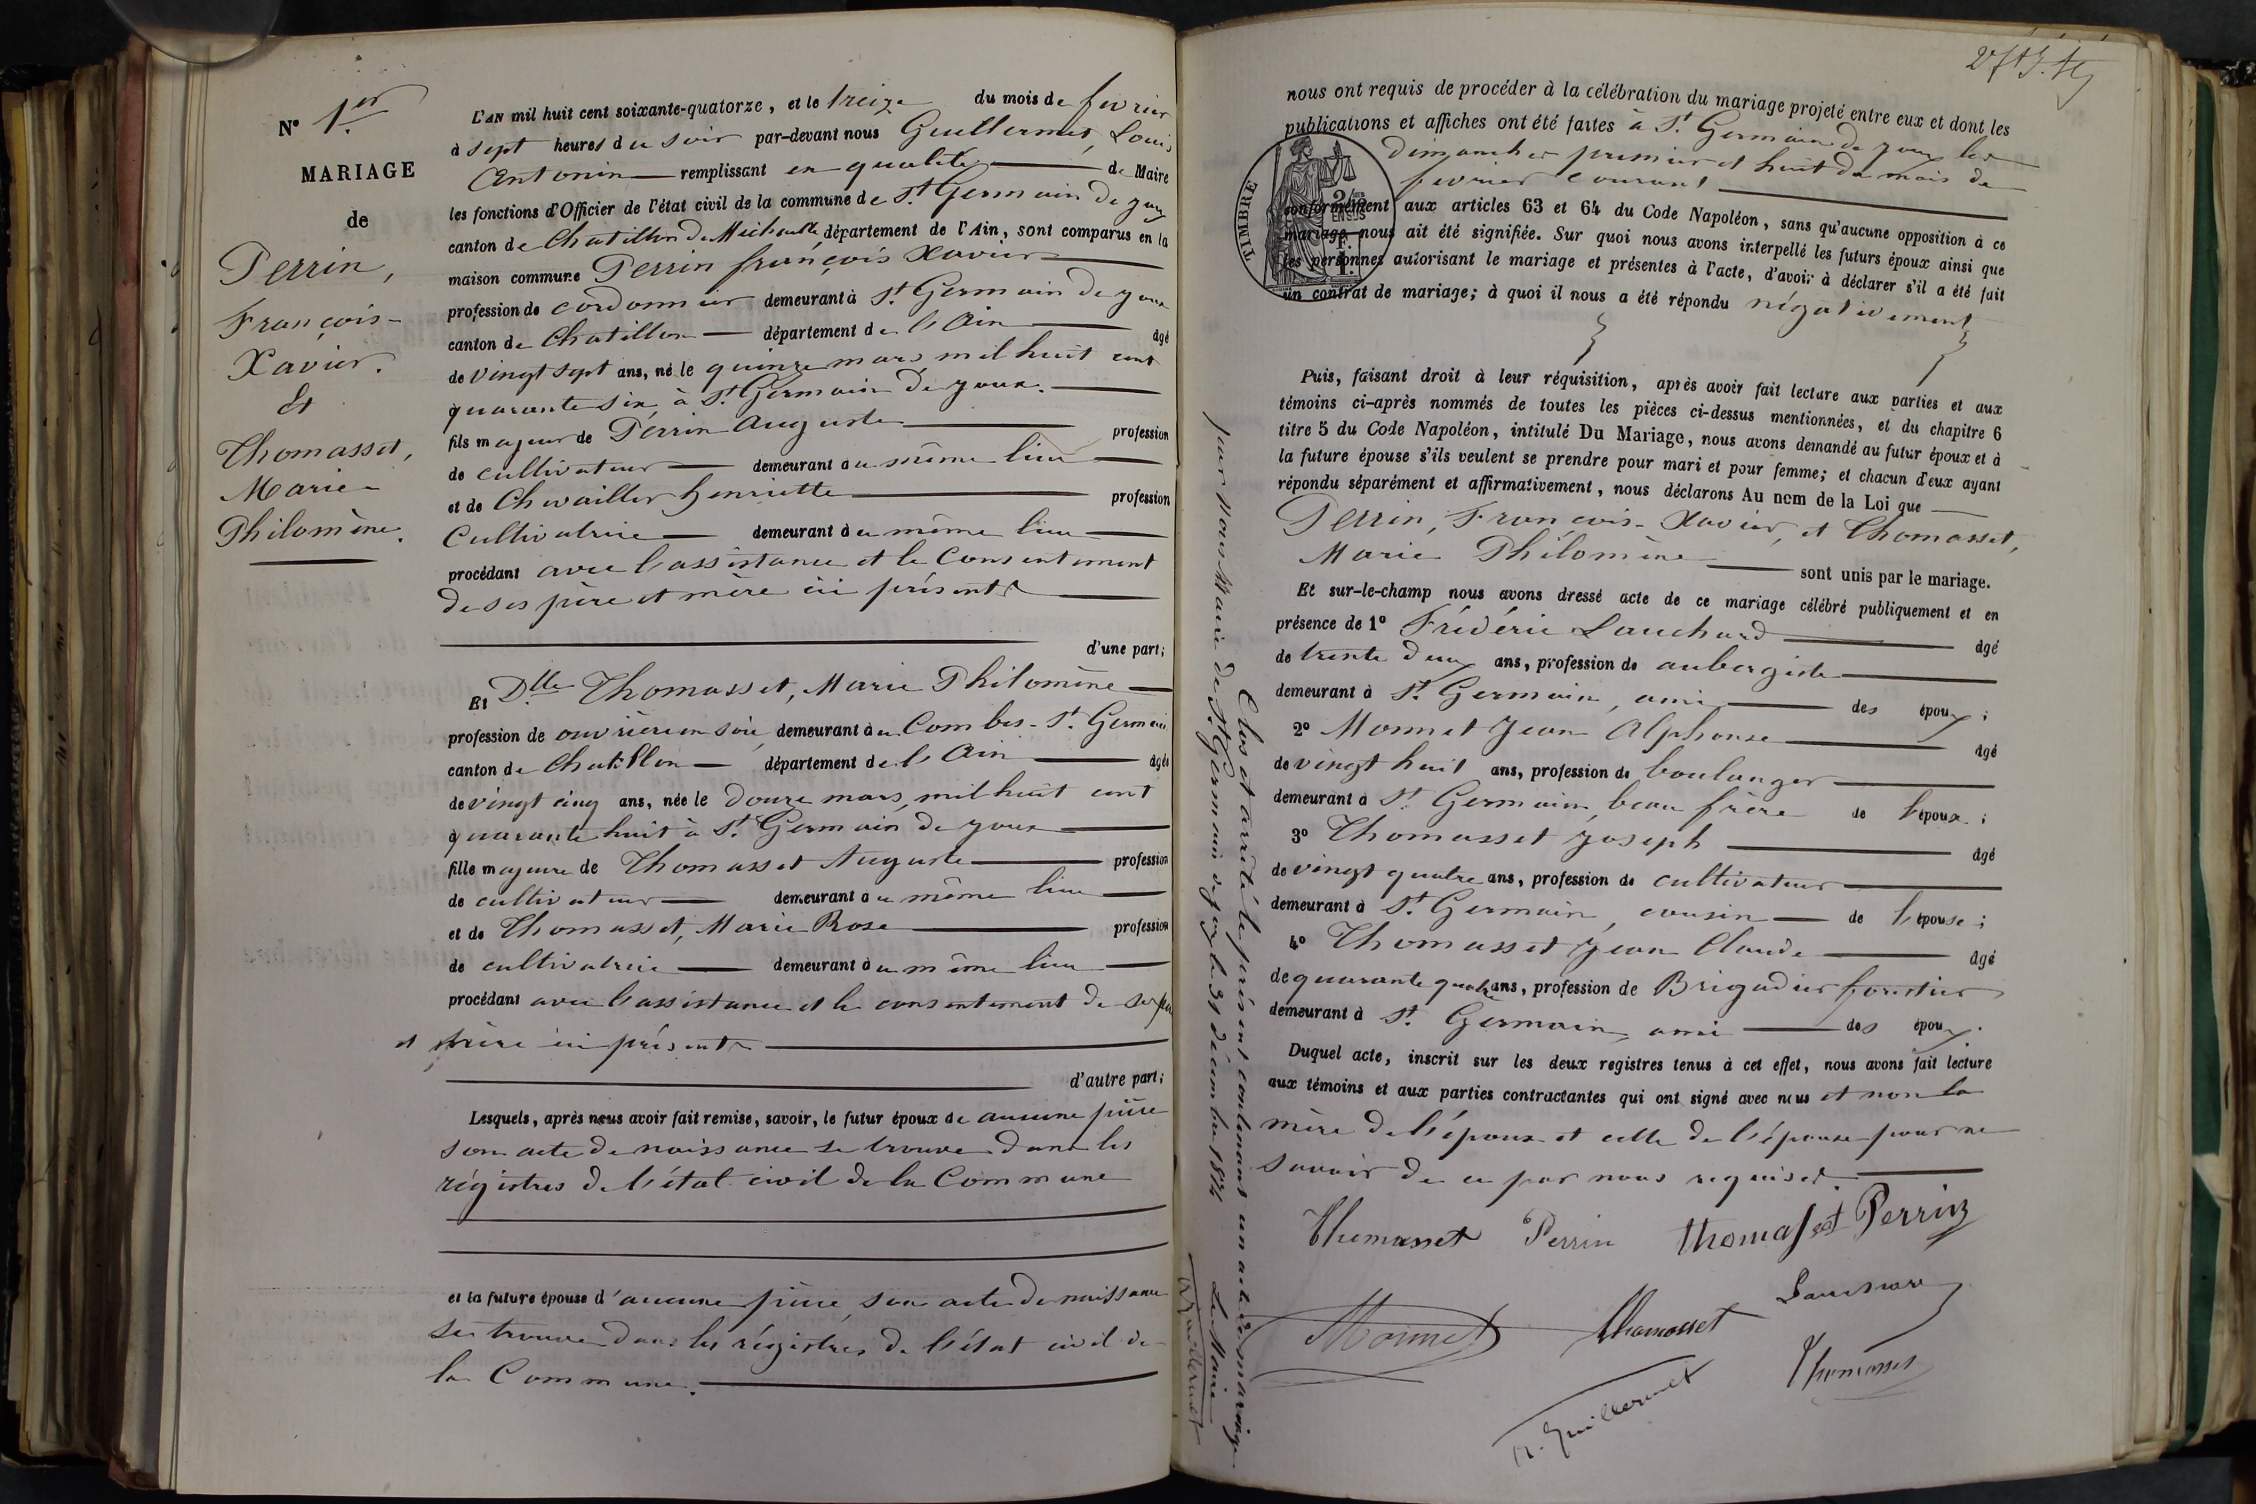 N° 1er
MARIAGE
de
Perrin,
François-
Xavier.
Et
Thomasset,
Marie-
Philomène.
L'AN mil huit cent soixante-quatorze, et le treize du mois de fevrier
à sept heures du soir par-devant nous Guillermet, Louis
Antonin remplissant en qualité de Maire
les fonctions d'Officier de l'état civil de la commune de St Germain de joux
canton de Chatillon de Michaille département de l'Ain, sont comparus en la
maison commune Perrin françois Xavier
profession de cordonnier demeurant à St Germain de joux
canton de Chatillon département de l'Ain âgé
de vingt sept ans, né le quinze mars mil huit cent
quarante six, à St Germain de joux.
fils majeur de Perrin Auguste profession
de cultivateur demeurant au même lieu
et de Chevailler henriette profession
Cultivatrice demeurant au même lieu
procédant avec l'assistance et le Consentement
de ses père et mère ici présents
d'une part;
Et Dlle Thomasset, Marie Philomène
profession de ouvrière en soie, demeurant au Combes-St Germain
canton de Chatillon département de l'Ain âgée
de vingt cinq ans, née le douze mars, mil huit cent
quarante huit à St Germain de joux
fille majeure de Thomasset Auguste profession
de cultivateur demeurant au même lieu
et de Thomasset, Marie Rose profession
de cultivatrice demeurant au même lieu
procédant avec l'assistance et le consentement de ses père
et mère ici présents
d'autre part;
Lesquels, après nous avoir fait remise, savoir, le futur époux de aucune pièce
son acte de naissance se trouve dans les
régistres de l'état civil de la Commune
et la future épouse d'aucune pièce, son acte de naissance
se trouve dans les régistres de l'état civil de
la Commune.
nous ont requis de procéder à la célébration du mariage projeté entre eux et dont les
publications et affiches ont été faites à St Germain de joux les
dimanches premier et huit du mois de
fevrier courant
TIMBRE
conformément aux articles 63 et 64 du Code Napoléon, sans qu'aucune opposition à ce
mariage nous ait été signifiée. Sur quoi nous avons interpellé les futurs époux ainsi que
les personnes autorisant le mariage et présentes à l'acte, d'avoir à déclarer s'il a été fait
un contrat de mariage; à quoi il nous a été répondu négativement
Puis, faisant droit à leur réquisition, après avoir fait lecture aux parties et aux
témoins ci-après nommés de toutes les pièces ci-dessus mentionnées, et du chapitre 6
titre 5 du Code Napoléon, intitulé Du Mariage, nous avons demandé au futur époux et à
la future épouse s'ils veulent se prendre pour mari et pour femme; et chacun d'eux ayant
répondu séparément et affirmativement, nous déclarons Au nom de la Loi que
Perrin, François-Xavier, et Thomasset,
Marie Philomène sont unis par le mariage.
Et sur-le-champ nous avons dressé acte de ce mariage célébré publiquement et en
présence de 1° Frédéric Lauchard âgé
de trente deux ans, profession de aubergiste
demeurant à St Germain, ami des époux;
2° Monnet Jean Alphonse âgé
de vingt huit ans, profession de boulanger
demeurant à St Germain, beau frère de l'époux;
3° Thomasset Joseph âgé
de vingt quatre ans, profession de cultivateur
demeurant à St Germain, cousin de l'épouse;
4° Thomasset Jean Claude âgé
de quarante quatre ans, profession de Brigadier forestier
demeurant à St Germain, ami des époux.
Duquel acte, inscrit sur les deux registres tenus à cet effet, nous avons fait lecture
aux témoins et aux parties contractantes qui ont signé avec nous et non la
mère de l'époux et celle de l'épouse pour ne
savoir de ce par nous requises
Thomasset Perrin thomasset Perrin
Monnet Thomasset Lauchard
A. Guillermet Thomasset
Clos et arrêté le présent contenant un acte de mariage
par nous Maire de St Germain de joux le 31 décembre 1874
Le Maire
A. Guillermet